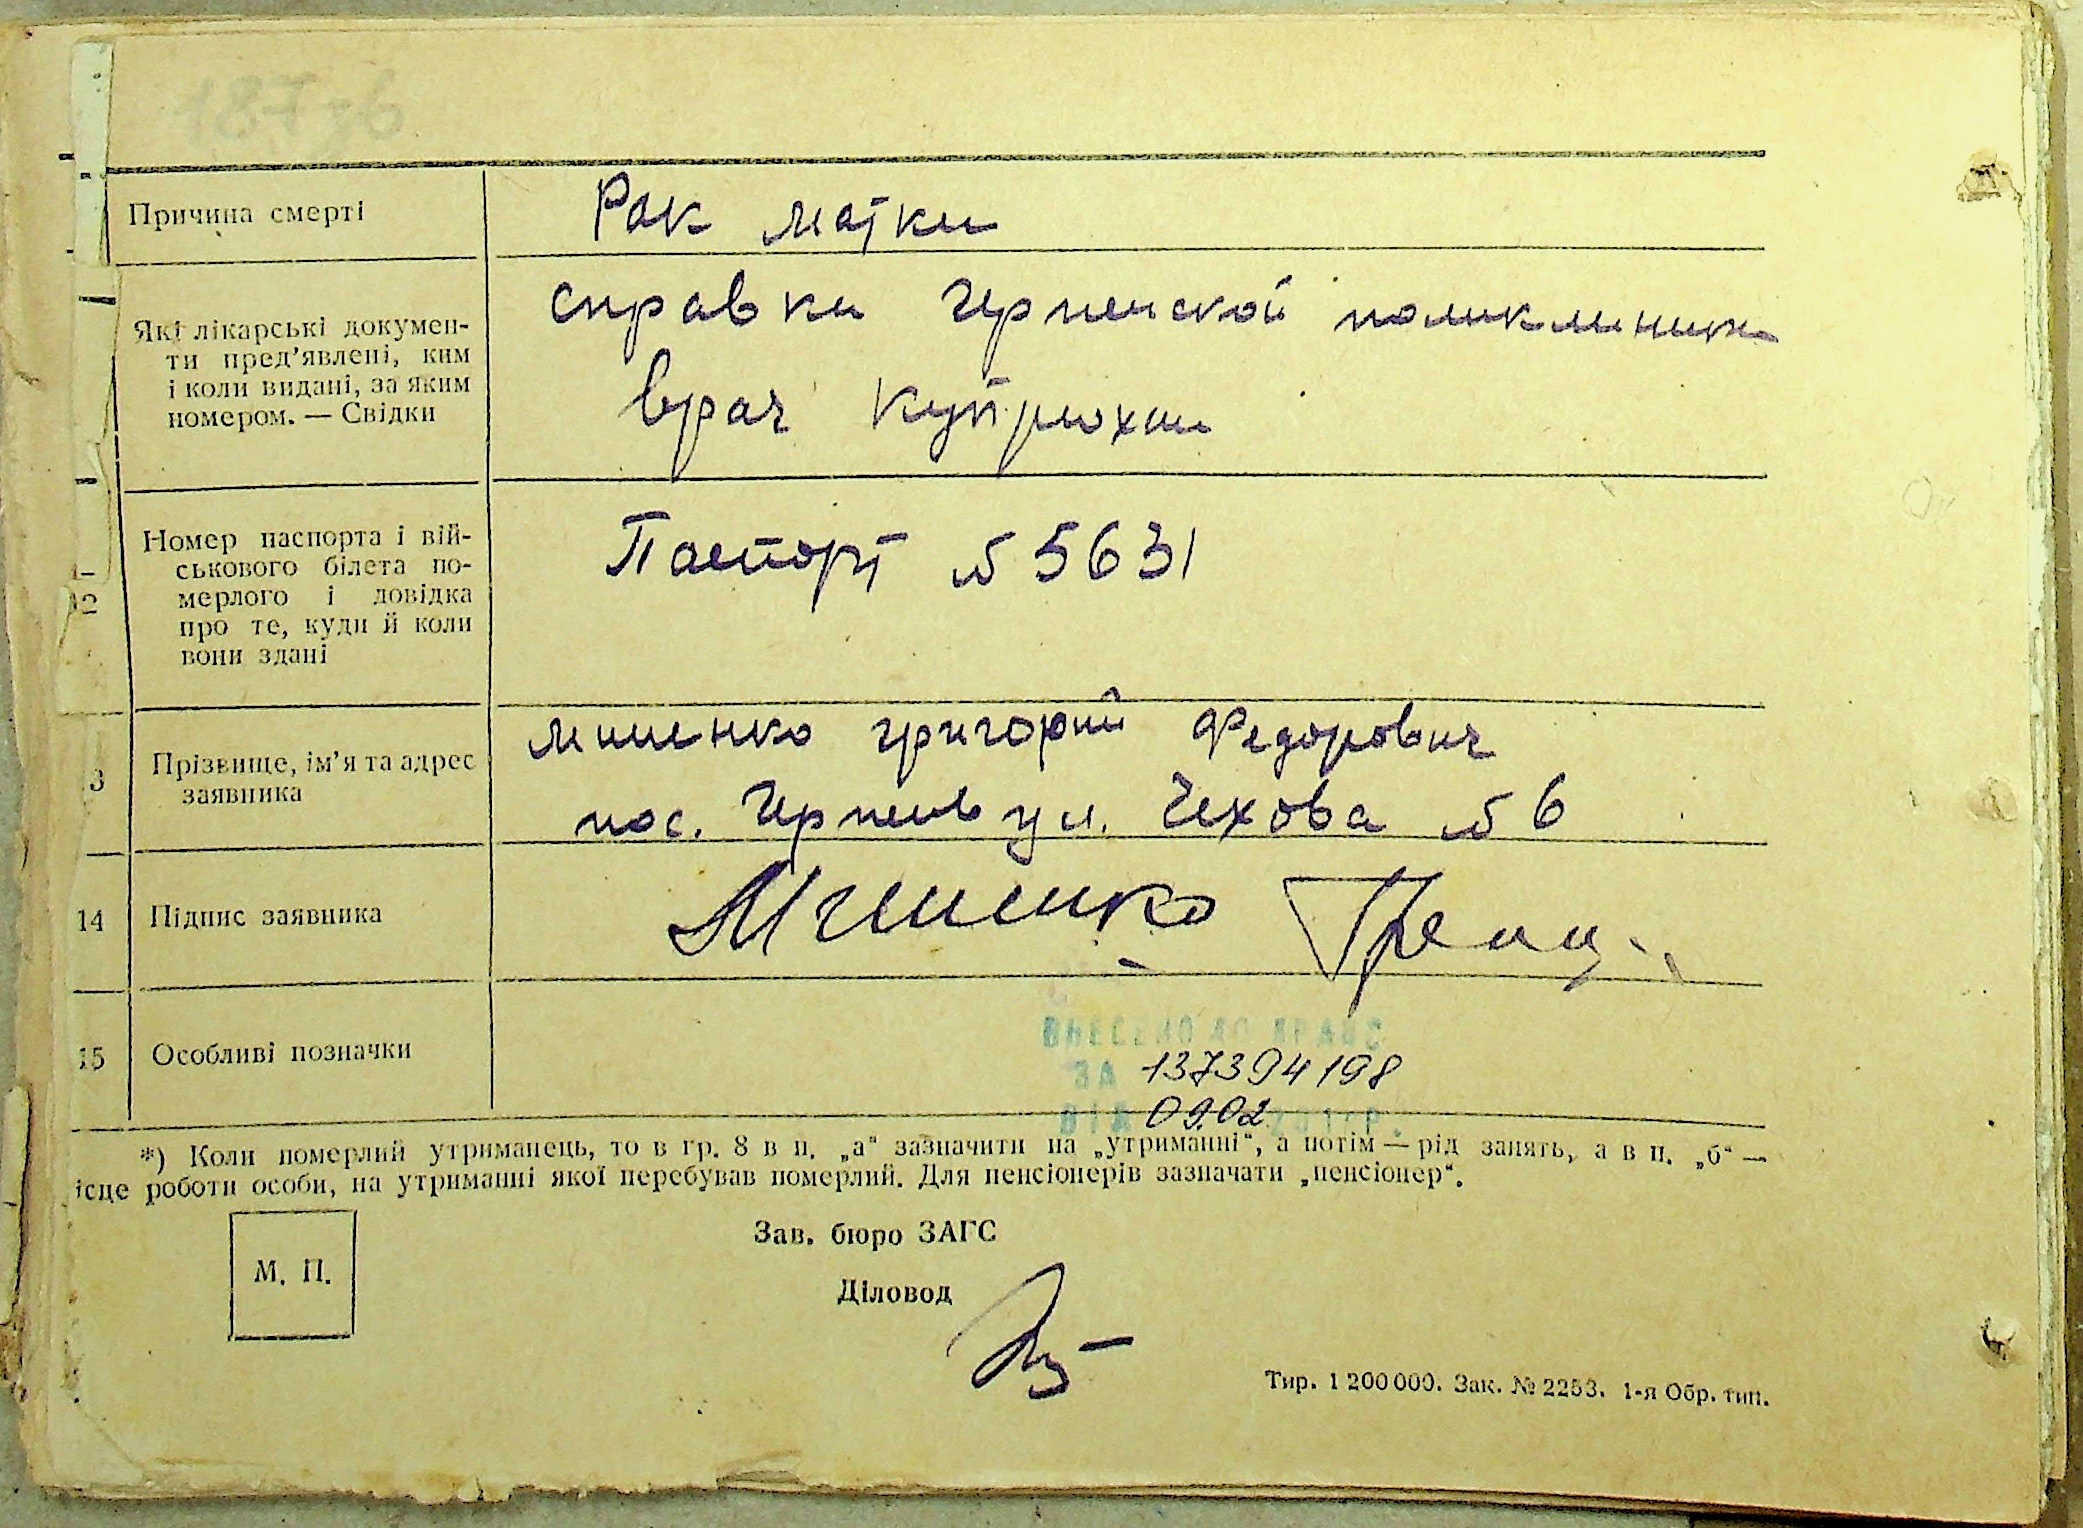 187зб
Причина смерті
Рак матки
Які лікарські докумен-
ти пред'явлені, ким
і коли видані, за яким
номером. — Свідки
справка Ирпенской поликлиники
врач
12
Номер паспорта і вій-
ськового білета по-
мерлого і довідка
про те, куди й коли
вони здані
Паспорт № 5631
3
Прізвище, ім'я та адрес
заявника
Мишенко Григорий Федорович
пос. Ирпень ул. Чехова № 6
14
Підпис заявника
Мишенко
15
Особливі позначки
ВНЕСЕНО ДО ДРАЦС
ЗА 137394198
ВІД 09.02
*) Коли померлий утриманець, то в гр. 8 в п. „а“ зазначити на „утриманні“, а потім — рід занять, а в п. „б“ —
ісце роботи особи, на утриманні якої перебував померлий. Для пенсіонерів зазначати „пенсіонер“.
М. П.
Зав. бюро ЗАГС
Діловод
Тир. 1 200 000. Зак. № 2253. 1-я Обр. тип.